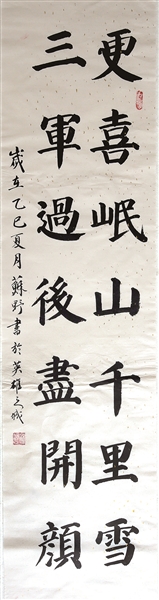 更喜岷山千里雪
三軍過後盡開顏
歲在乙巳夏月蘇野書於英雄之城